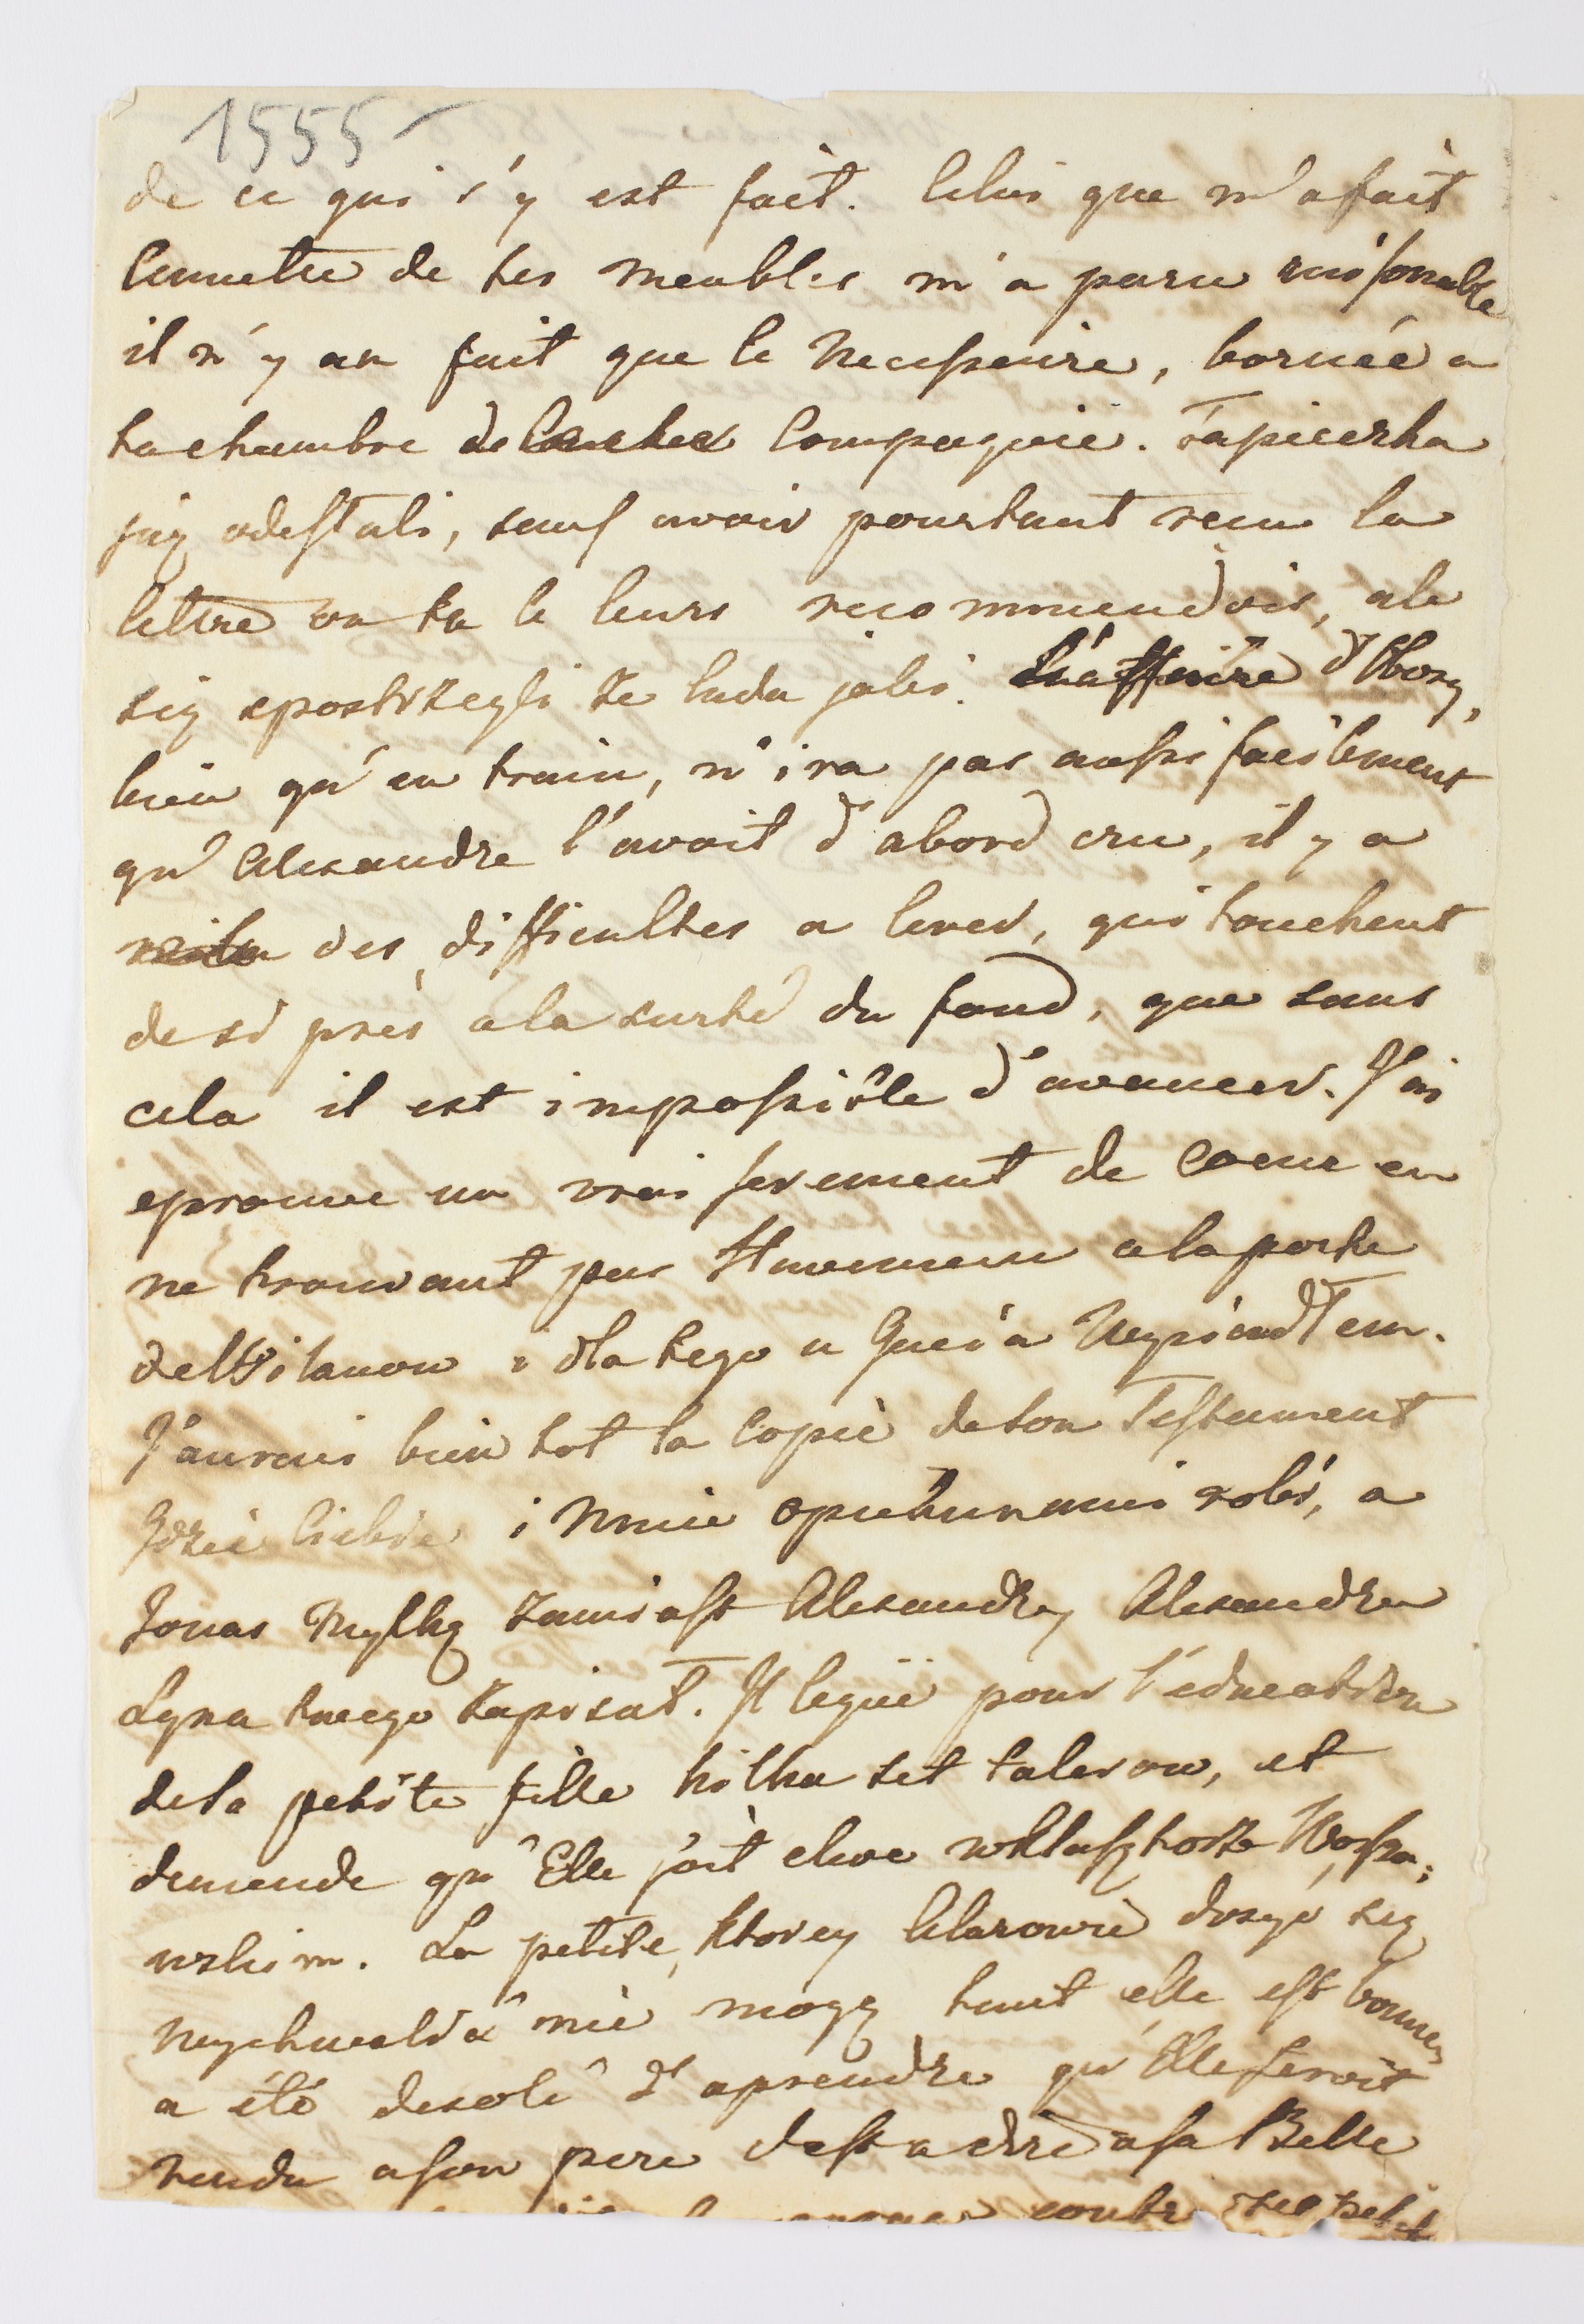 1555-
de ce qui s'y est fait. Celui que m'a fait
Connetre de tes meubles m'a paru raisonable
il n'y an fait que le Necessaire, bornée a
ta chambre de Compagnie. Tapicerka
juz odestali, sauf avoir pourtant recu la
lettre ou tu le leurs recommendois, ale
się spostrzegli ze luda jakis. L'affaire d'Obory,
bien qu'en train, n'ira pas aussi facilement
qu'Alexandre l'avait d'abord cru, il y a
des difficultes a lever, qui touchent
de si près a la surté du fond, que sans
cela il est impossible d'avancer. J'ai
eprouve un vrai serement de Coeur en
ne trouvant pas a la porte
de Wilanow i dla tego u Gucia Wysiadłem.
J'aurais bien tot la Copie de son Testament
Gdzie Ciebie i Mnie opiekunami robi, a
Zonas Mylką zamiast Alexandry Alexandra
Syna twego zapisał. Il legue pour l'éducation
de la petite fille kilka set talerow, et
demande qu'Elle soit eleve w klasztorze Warsza:
wskim. La petite, ktorey Cesarowie dosyć się
Wychwalić nie mogą tant elle est bonne,
a été desolé d'aprendre qu'Elle seroit
rendu a son pere c'est a dire a sa Belle
contre